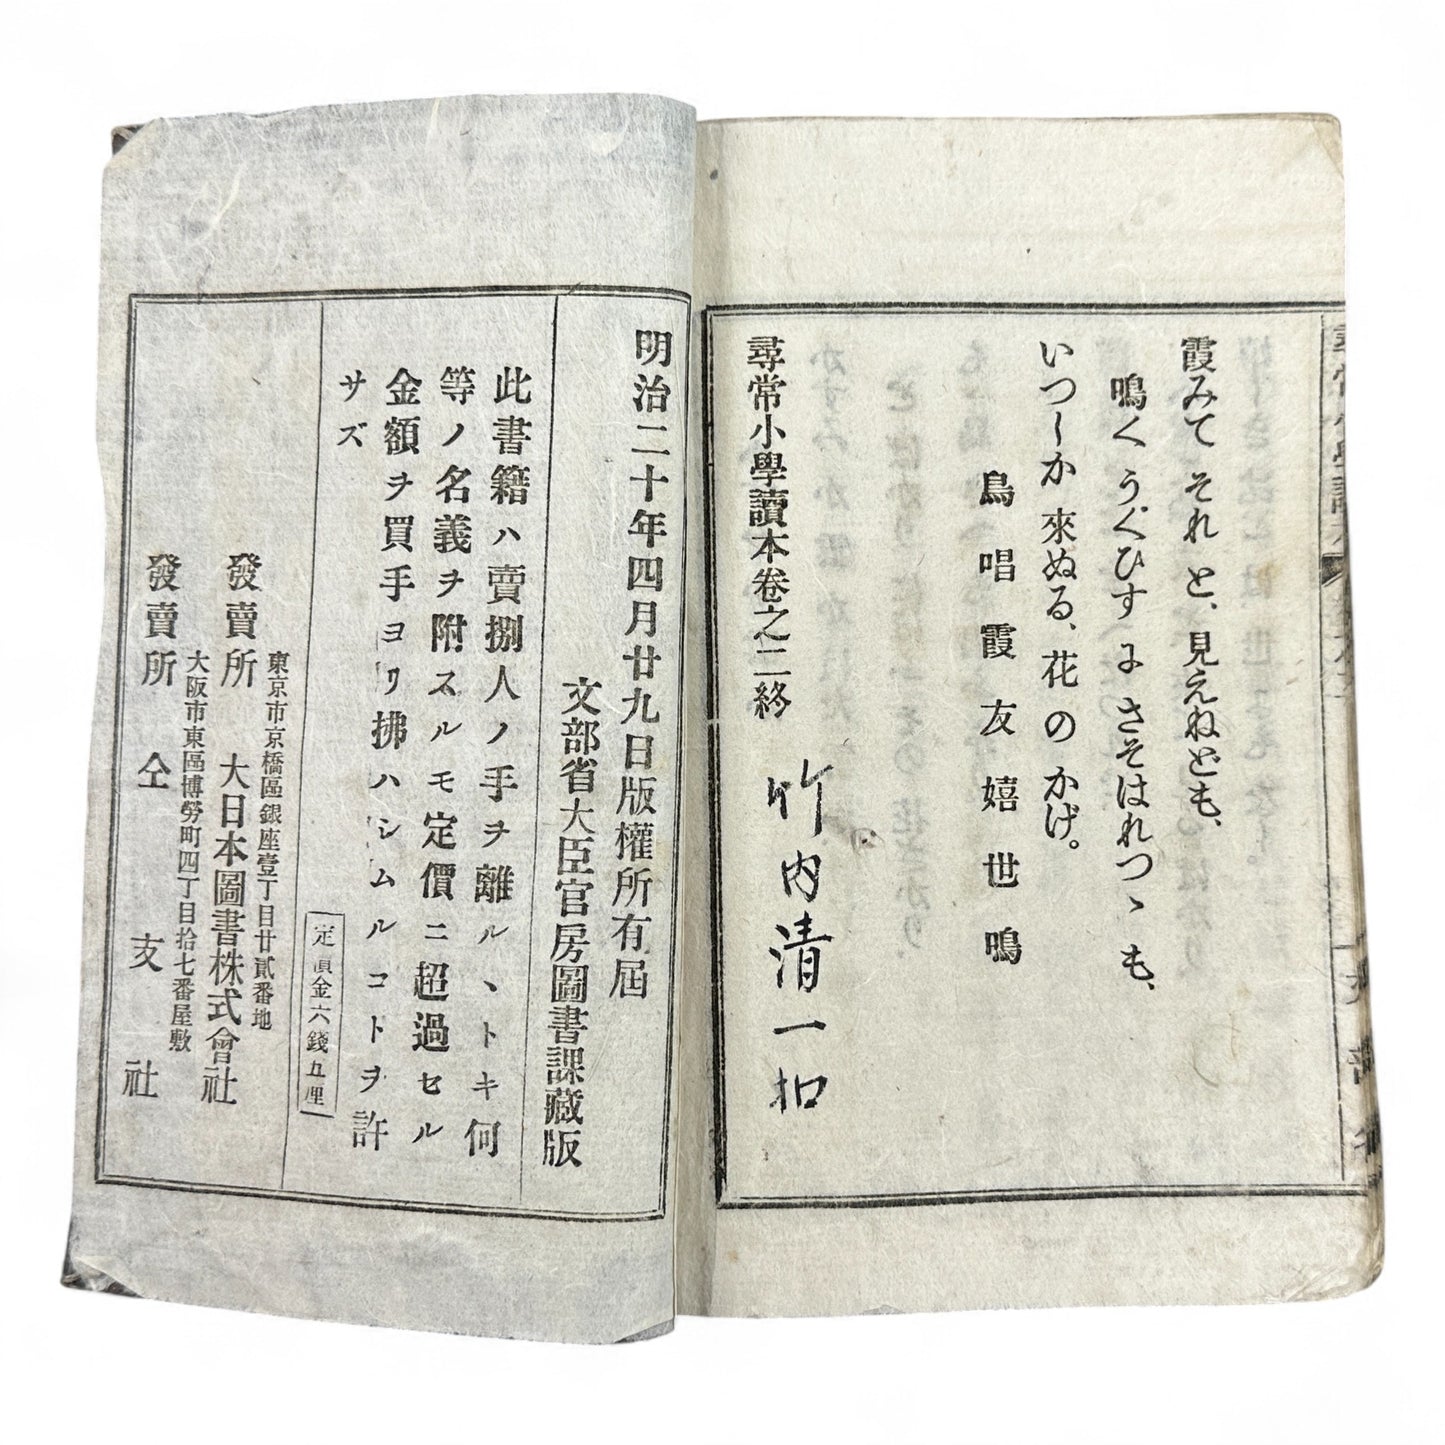 霞みて それ と、見えねども、
鳴くうぐひす よ さそはれつゝも、
いつしか 來ぬる、花のかげ。
鳥 唱 霞 友 嬉 世 鳴
尋常小學讀本卷之二終
竹内清一扣
明治二十年四月廿九日版權所有屆
文部省大臣官房圖書課藏版
此書籍ハ賣捌人ノ手ヲ離ルヽトキ何
等ノ名義ヲ附スルモ定價ニ超過セル
金額ヲ買手ヨリ拂ハシムルコトヲ許
サズ
定價金六錢五厘
東京市京橋區銀座壹丁目廿貳番地
發賣所 大日本圖書株式會社
大阪市東區博勞町四丁目拾七番屋敷
發賣所 仝 支 社